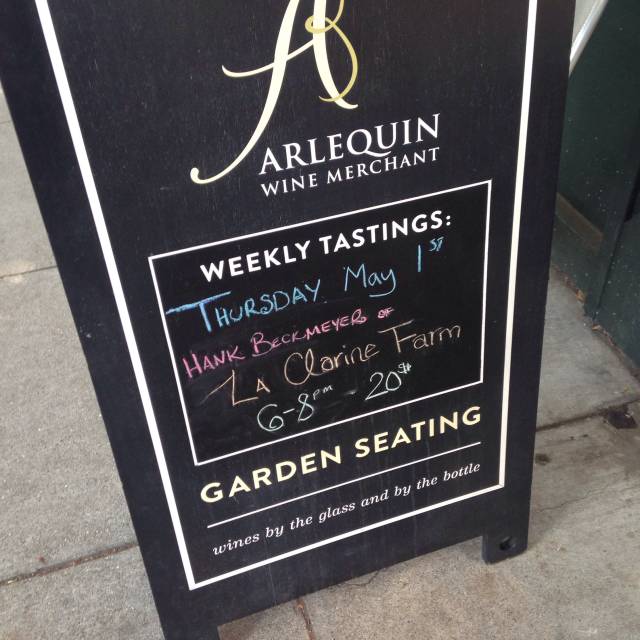 A
ARLEQUIN
WINE MERCHANT
WEEKLY TASTINGS:
THURSDAY May 1ST
HANK BECKMEYER OF
LA Clarine Farm
6-8pm - 20$
GARDEN SEATING
wines by the glass and by the bottle